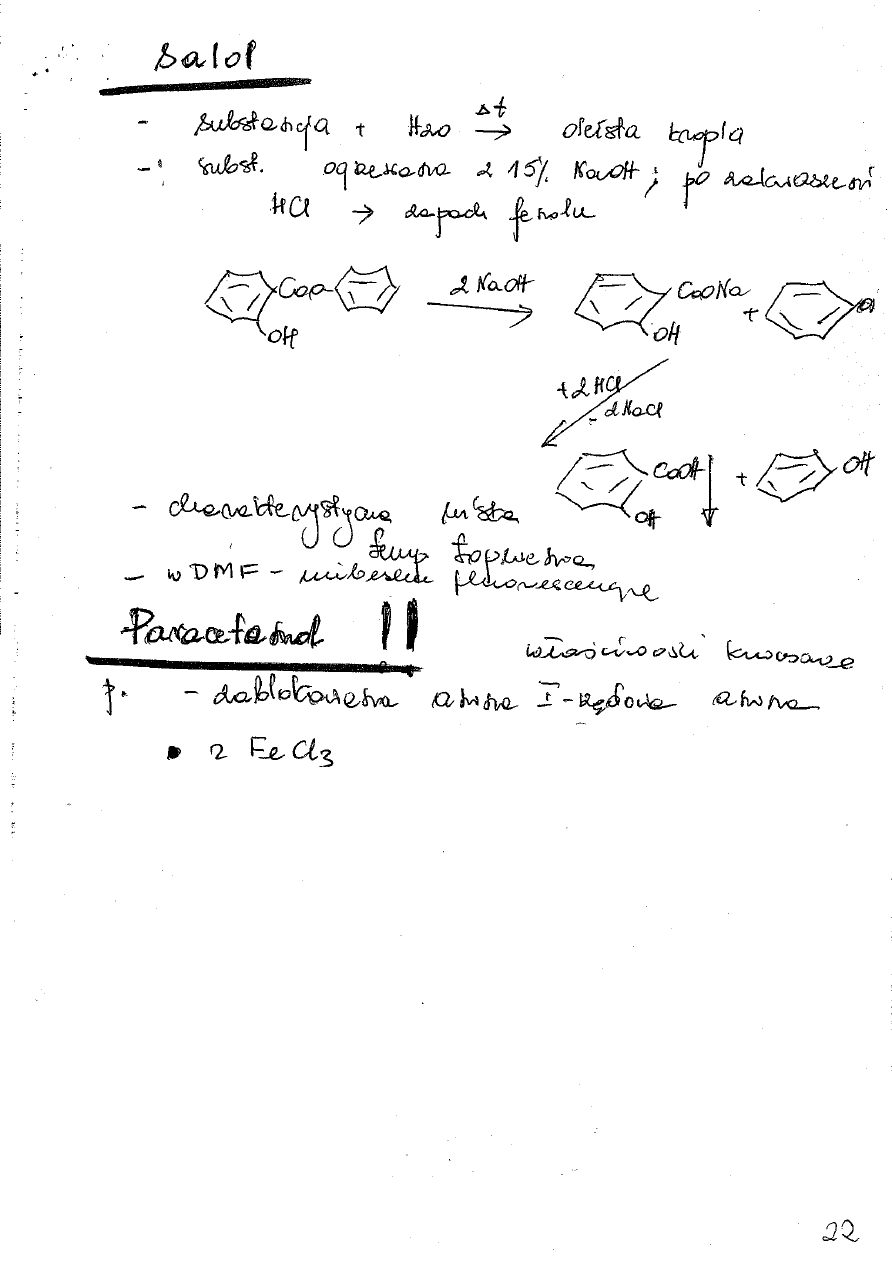 Salol
- substancja + H2O Δt → oleista kropla
- subst. ogrzewana z 15% NaOH; po zakwaszeniu
HCl → zapach fenolu
COO
OH
2 NaOH
COONa
OH
+
+2HCl
- 2NaCl
COOH
OH
+
OH
- charakterystyczna niska
temp topnienia
- w DMF - niebieska fluorescencja
Paracetamol !!
właściwości kwasowe
p. - zablokowana amina I-rzędowa amina
• z FeCl3
22